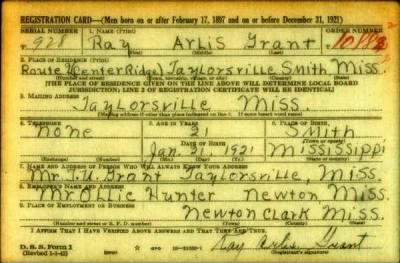 REGISTRATION CARD—(Men born on or after February 17, 1897 and on or before December 31, 1921)
SERIAL NUMBER 1. NAME (Print) ORDER NUMBER
928 Ray Arlis Grant
(First) (Middle) (Last)
2. PLACE OF RESIDENCE (Print)
Route (Center Ridge) Taylorsville Smith Miss.
(Number and street) (Town, township, village, or city) (County) (State)
[THE PLACE OF RESIDENCE GIVEN ON THE LINE ABOVE WILL DETERMINE LOCAL BOARD
JURISDICTION; LINE 2 OF REGISTRATION CERTIFICATE WILL BE IDENTICAL]
3. MAILING ADDRESS
Taylorsville Miss.
[Mailing address if other than place indicated on line 2. If same insert word same]
4. TELEPHONE 5. AGE IN YEARS 6. PLACE OF BIRTH
none 21 Smith
DATE OF BIRTH (Town or county)
Jan. 31, 1921 Mississippi
(Exchange) (Number) (Mo.) (Day) (Yr.) (State or country)
7. NAME AND ADDRESS OF PERSON WHO WILL ALWAYS KNOW YOUR ADDRESS
Mr. J.U. Grant Taylorsville, Miss.
8. EMPLOYER'S NAME AND ADDRESS
Mr Ollie Hunter Newton Miss.
9. PLACE OF EMPLOYMENT OR BUSINESS
Newton Clark Miss.
(Number and street or R. F. D. number) (Town) (County) (State)
I AFFIRM THAT I HAVE VERIFIED ABOVE ANSWERS AND THAT THEY ARE TRUE.
D. S. S. Form 1
(Revised 1-1-42) GPO Ray Arlis Grant
(Registrant's signature)